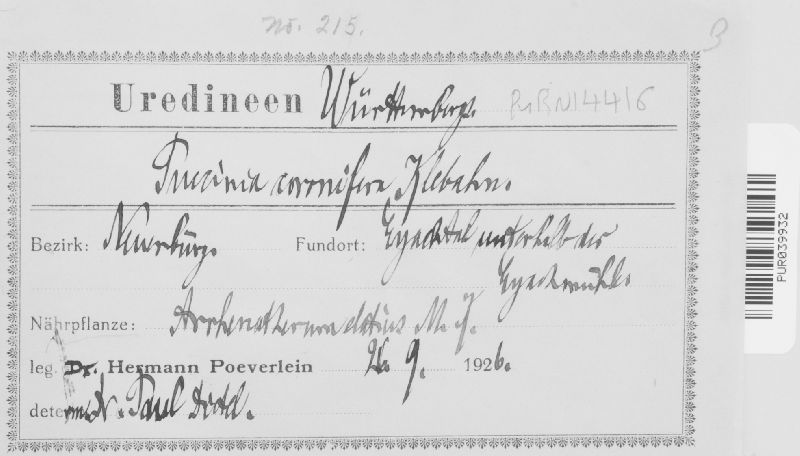 No. 215.
3
Uredineen Württembergs.
PUR N14416
Puccinia coronifera Klebahn.
Bezirk: Neuenbürg. Fundort: Eyachtal unterhalb der
Eyachmühle
Nährpflanze: Arrhenatherum elatius M. K.
leg. Dr. Hermann Poeverlein 26. 9. 1926.
determ. Dr. Paul Dietel.
PUR039932